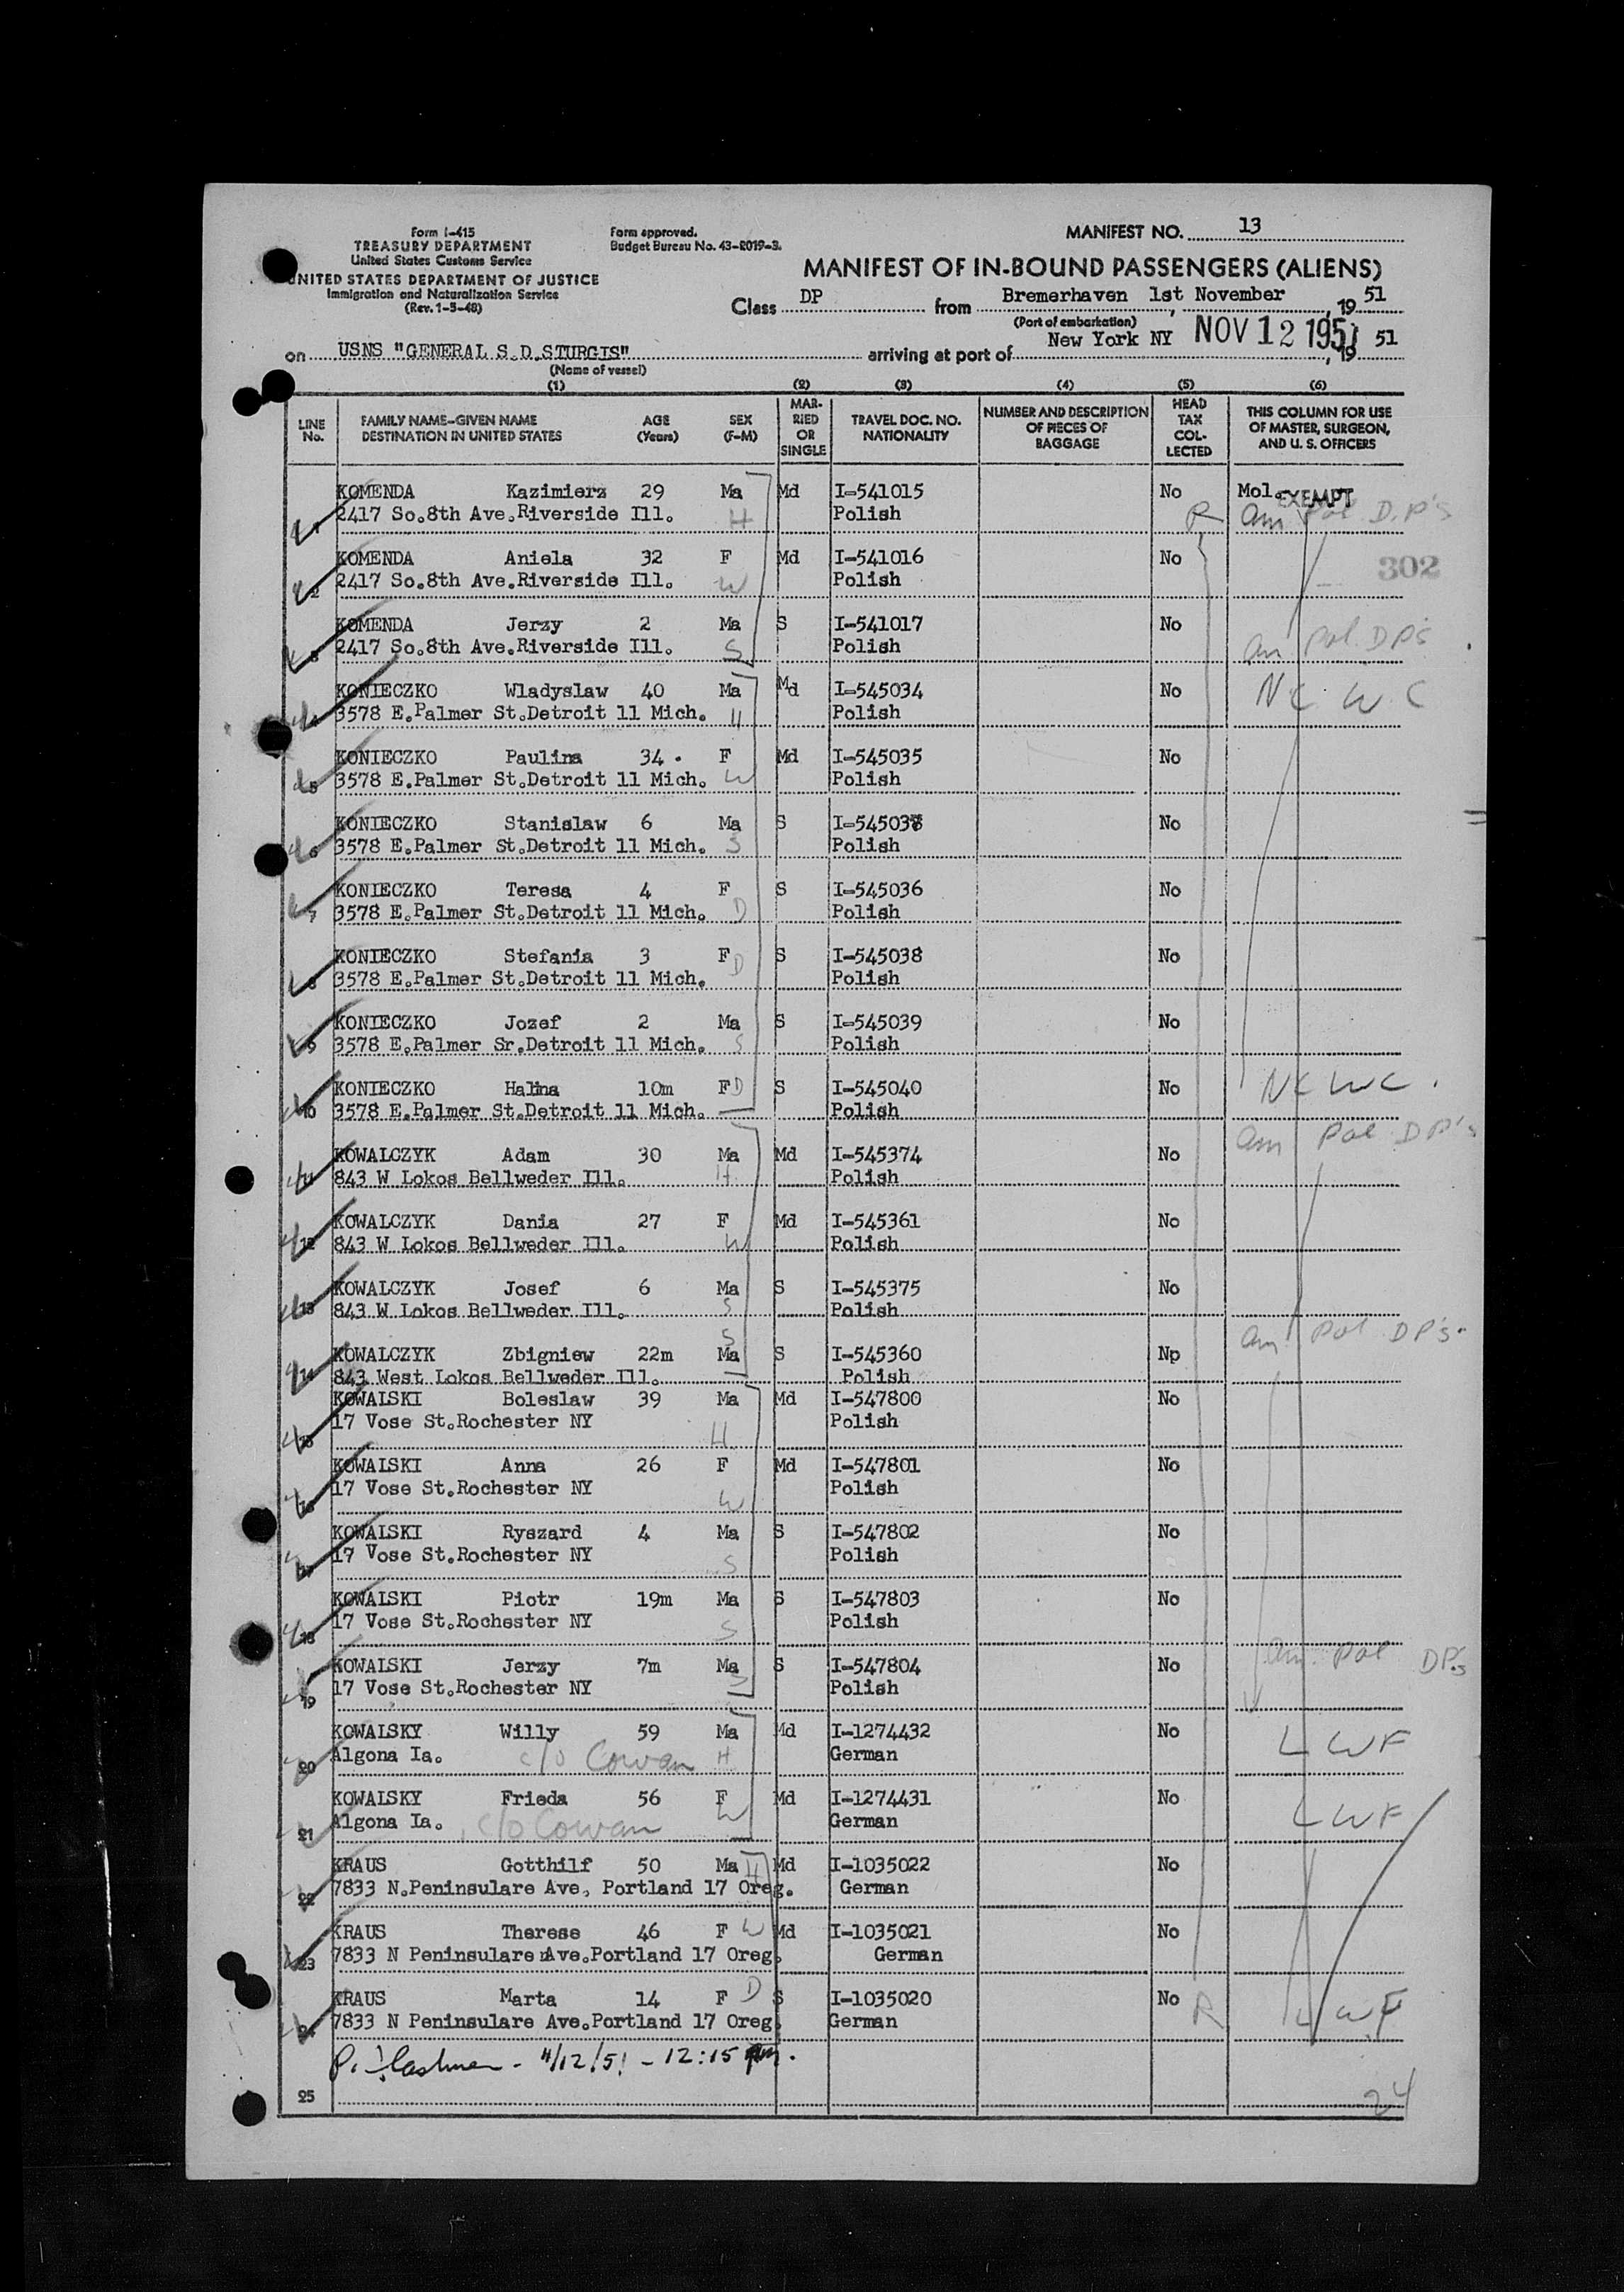 Form I-415
TREASURY DEPARTMENT
United States Customs Service
UNITED STATES DEPARTMENT OF JUSTICE
Immigration and Naturalization Service
(Rev. 1-5-48)
Form approved.
Budget Bureau No. 43-R019-3.
MANIFEST NO. 13
MANIFEST OF IN-BOUND PASSENGERS (ALIENS)
Class DP from Bremerhaven 1st November, 19 51
(Port of embarkation)
on USNS "GENERAL S.D.STURGIS" arriving at port of New York NY NOV 12 1951, 19 51
(Name of vessel)
(1) (2) (3) (4) (5) (6)
LINE No. FAMILY NAME–GIVEN NAME DESTINATION IN UNITED STATES AGE (Years) SEX (F–M) MARRIED OR SINGLE TRAVEL DOC. NO. NATIONALITY NUMBER AND DESCRIPTION OF PIECES OF BAGGAGE HEAD TAX COLLECTED THIS COLUMN FOR USE OF MASTER, SURGEON, AND U. S. OFFICERS
KOMENDA Kazimierz 29 Ma Md I-541015 No Mol. EXEMPT
1 2417 So.8th Ave.Riverside Ill. H Polish R Am Pol D.P's
KOMENDA Aniela 32 F Md I-541016 No 302
2 2417 So.8th Ave.Riverside Ill. W Polish
KOMENDA Jerzy 2 Ma S I-541017 No
3 2417 So.8th Ave.Riverside Ill. S Polish Am Pol DP's
KONIECZKO Wladyslaw 40 Ma Md I-545034 No N C W C
4 3578 E.Palmer St.Detroit 11 Mich. H Polish
KONIECZKO Paulina 34 F Md I-545035 No
5 3578 E.Palmer St.Detroit 11 Mich. W Polish
KONIECZKO Stanislaw 6 Ma S I-545037 No
6 3578 E.Palmer St.Detroit 11 Mich. S Polish
KONIECZKO Teresa 4 F S I-545036 No
7 3578 E.Palmer St.Detroit 11 Mich. D Polish
KONIECZKO Stefania 3 F D S I-545038 No
8 3578 E.Palmer St.Detroit 11 Mich. Polish
KONIECZKO Jozef 2 Ma S I-545039 No
9 3578 E.Palmer Sr.Detroit 11 Mich. S Polish
KONIECZKO Halina 10m F D S I-545040 No N C W C.
10 3578 E.Palmer St.Detroit 11 Mich. Polish
Am Pol DP's
KOWALCZYK Adam 30 Ma Md I-545374 No
11 843 W Lokos Bellweder Ill. H Polish
KOWALCZYK Dania 27 F Md I-545361 No
12 843 W Lokos Bellweder Ill. W Polish
KOWALCZYK Josef 6 Ma S I-545375 No
13 843 W Lokos Bellweder Ill. S Polish
S Am Pol DP's.
KOWALCZYK Zbigniew 22m Ma S I-545360 Np
14 843 West Lokos Bellweder Ill. Polish
KOWALSKI Boleslaw 39 Ma Md I-547800 No
17 Vose St.Rochester NY Polish
15 H
KOWALSKI Anna 26 F Md I-547801 No
17 Vose St.Rochester NY Polish
16 W
KOWALSKI Ryszard 4 Ma S I-547802 No
17 Vose St.Rochester NY Polish
17 S
KOWALSKI Piotr 19m Ma S I-547803 No
17 Vose St.Rochester NY Polish
18 S
Am Pol DP's
KOWALSKI Jerzy 7m Ma S I-547804 No
17 Vose St.Rochester NY S Polish
19
KOWALSKY Willy 59 Ma Md I-1274432 No L W F
20 Algona Ia. c/o Cowan H German
KOWALSKY Frieda 56 F Md I-1274431 No L W F
21 Algona Ia. c/o Cowan W German
KRAUS Gotthilf 50 Ma H Md I-1035022 No
22 7833 N.Peninsulare Ave, Portland 17 Oreg. German
KRAUS Therese 46 F W Md I-1035021 No
23 7833 N Peninsulare Ave.Portland 17 Oreg. German
KRAUS Marta 14 F D S I-1035020 No R L W F
24 7833 N Peninsulare Ave.Portland 17 Oreg. German
11/12/51 - 12:15 pm.
25 24